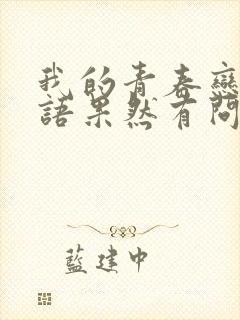 我的青春戀
語果然有問
藍建中